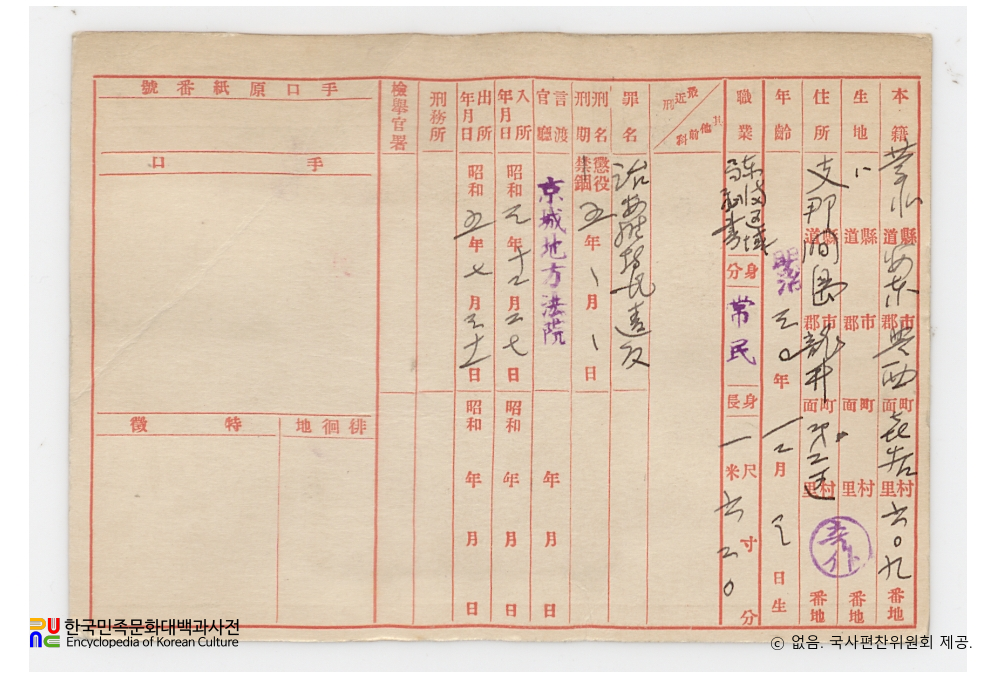 本籍 慶北 道縣 安東 郡市 豊西 面町 里村 六〇九 番地
生地 〃 道縣 郡市 面町 里村 番地
住所 支那間島 道縣 郡市 龍井 面町 里村 番地
年齡 明治 三〇年 一二月 日生
職業 身分 常民 身長 一米尺 六寸 二〇分
最近刑 其他前科
罪名 治安維持法違反
刑名 刑期 懲役 禁錮 五年 月 日
言渡官廳 京城地方法院 年 月 日
入所年月日 昭和 三年 十二月 二七日 昭和 年 月 日
出所年月日 昭和 五年 七月 三十日 昭和 年 月 日
刑務所
檢擧官署
手口原紙番號
手口
徘徊地
特徵
한국민족문화대백과사전
Encyclopedia of Korean Culture
ⓒ 없음. 국사편찬위원회 제공.